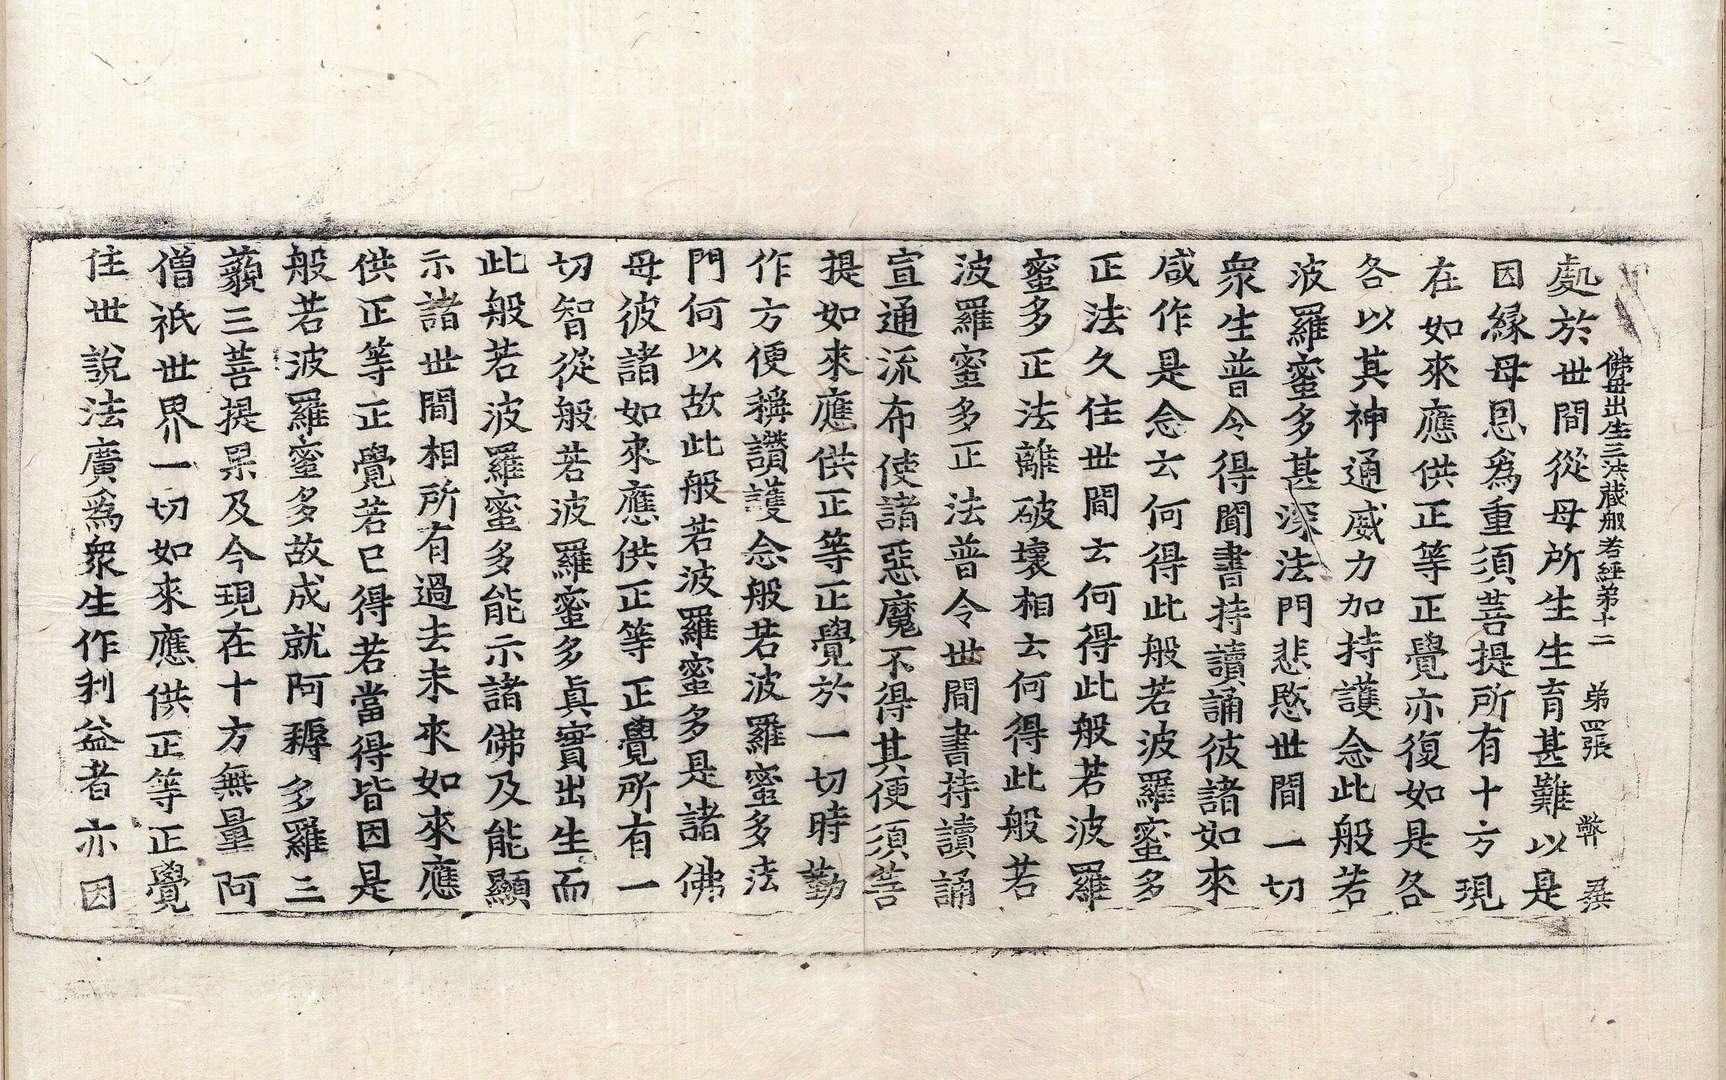 佛母出生三法藏般若經第十二 第四張 弊
處於世間從母所生生育甚難以是
因緣母恩爲重須菩提所有十方現
在如來應供正等正覺亦復如是各
各以其神通威力加持護念此般若
波羅蜜多甚深法門悲愍世間一切
衆生普令得聞書持讀誦彼諸如來
咸作是念云何得此般若波羅蜜多
正法久住世間云何得此般若波羅
蜜多正法離破壞相云何得此般若
波羅蜜多正法普令世間書持讀誦
宣通流布使諸惡魔不得其便須菩
提如來應供正等正覺於一切時勤
作方便稱讚護念般若波羅蜜多法
門何以故此般若波羅蜜多是諸佛
母彼諸如來應供正等正覺所有一
切智從般若波羅蜜多眞實出生而
此般若波羅蜜多能示諸佛及能顯
示諸世間相所有過去未來如來應
供正等正覺若已得若當得皆因是
般若波羅蜜多故成就阿耨多羅三
藐三菩提果及今現在十方無量阿
僧祇世界一切如來應供正等正覺
住世說法廣爲衆生作利益者亦因